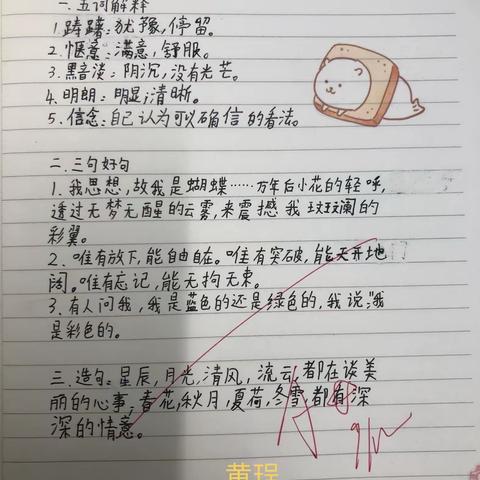 一.五词解释
1.踌躇:犹豫,停留。
2.惬意:满意,舒服。
3.黯淡:阴沉,没有光芒。
4.明朗:明显;清晰。
5.信念:自己认为可以确信的看法。
二.三句好句
1.我思想,故我是蝴蝶……万年后小花的轻呼,
透过无梦无醒的云雾,来震撼我斑斓的
彩翼。
2.唯有放下,能自由自在。唯有突破,能天开地
阔。唯有忘记,能无拘无束。
3.有人问我,我是蓝色的还是绿色的,我说:我
是彩色的。
三.造句:星辰,月光,清风,流云,都在谈美
丽的心事,春花,秋月,夏荷,冬雪,都有深
深的情意。
黄珵